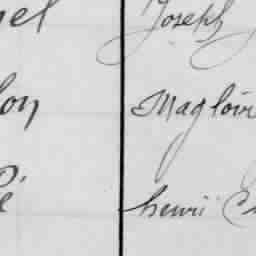 nel Joseph
lon Magloir
é henri C